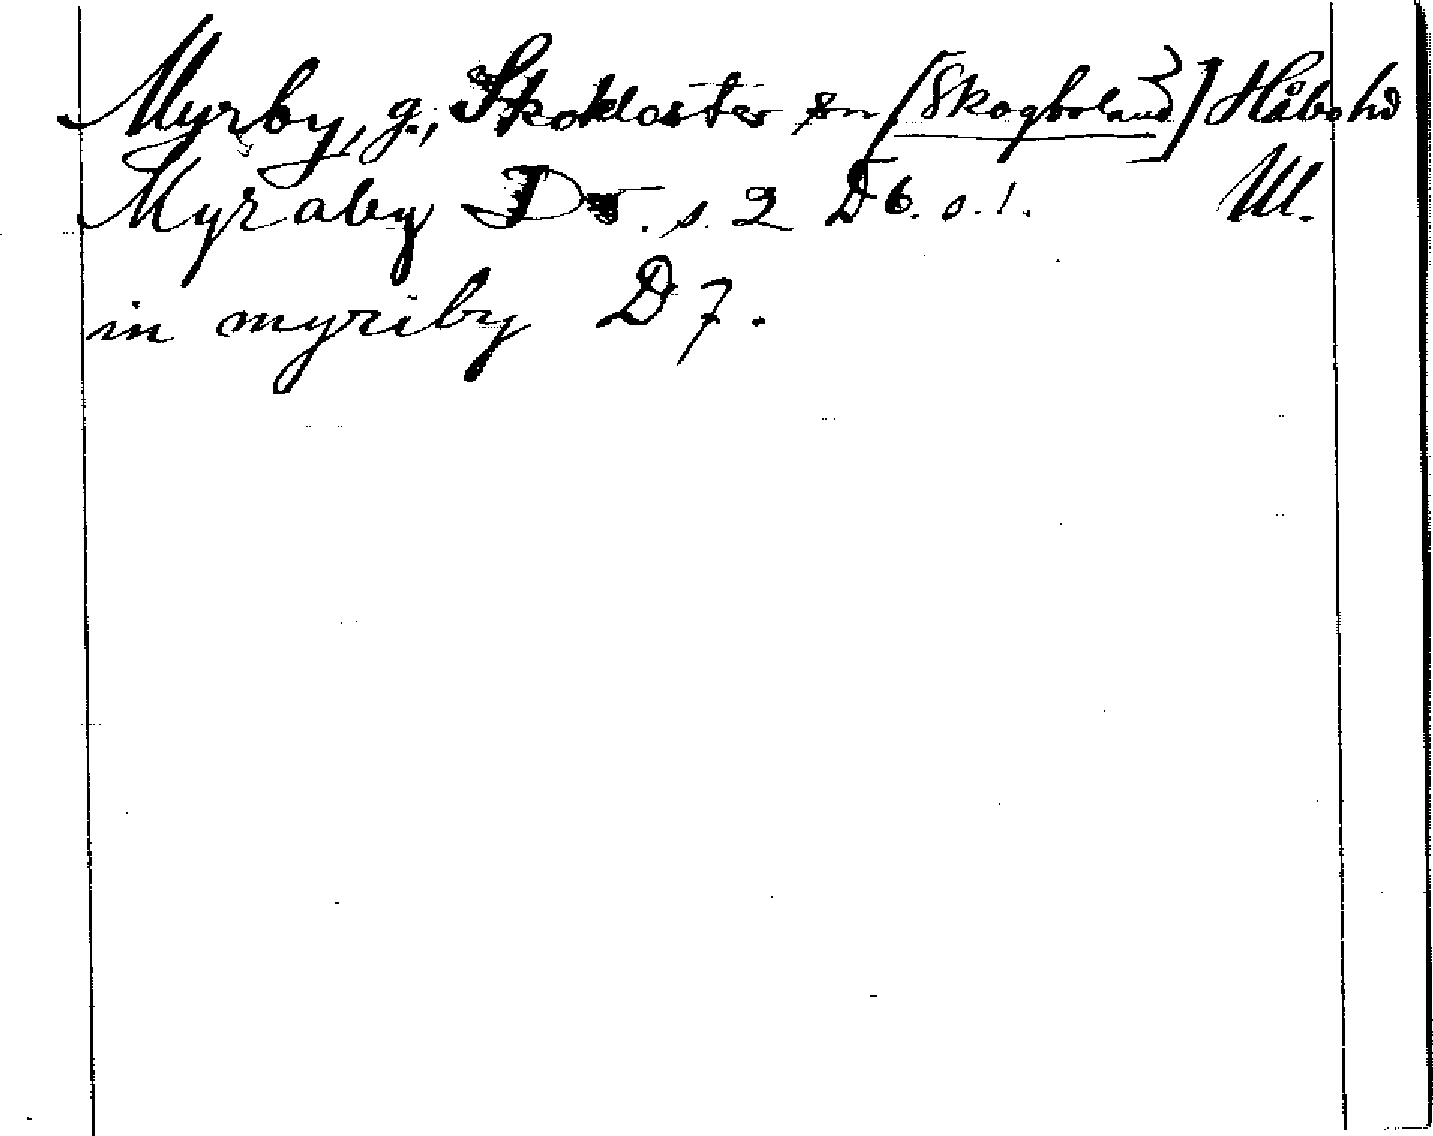 Myrby, g., Skokloster sn [Skogboland] Håbo hd
Myraby D5. s. 2 D6. s. 1. Ul.
in myriby D7.